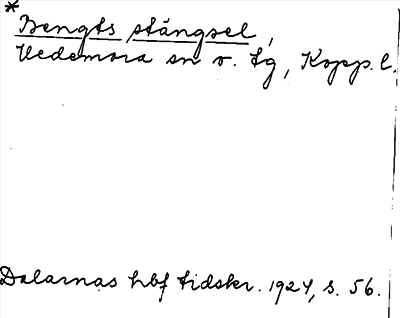 * Bengts stängsel,
Hedemora sn o. tg, Kopp. l.
Dalarnas hbf tidskr. 1924, s. 56.